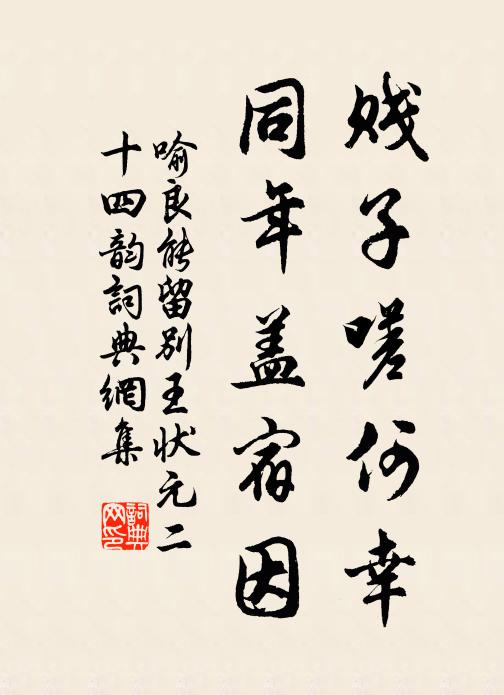 贱子嗟何幸
同年盖宿因
喻良能留别王状元二
十四韵詞典網集
詞典网印